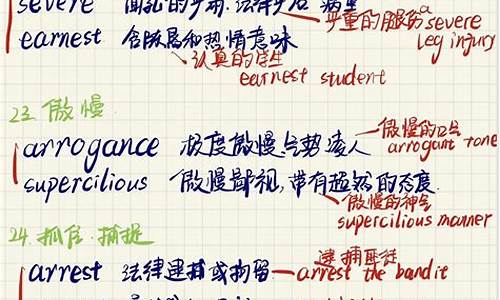 severe
严重的腿伤 a severe leg injury
earnest 含眹 和热情意味
认真的学生
earnest student
23. 傲慢
arrogance 极度傲慢,气势凌人
傲慢的口气
arrogant tone
supercilious 傲慢鄙视,带有超然的态度
傲慢的神气
supercilious manner
24. 抓住. 捕捉
arrest 法律逮捕或拘留
逮捕匪徒
arrest the bandit